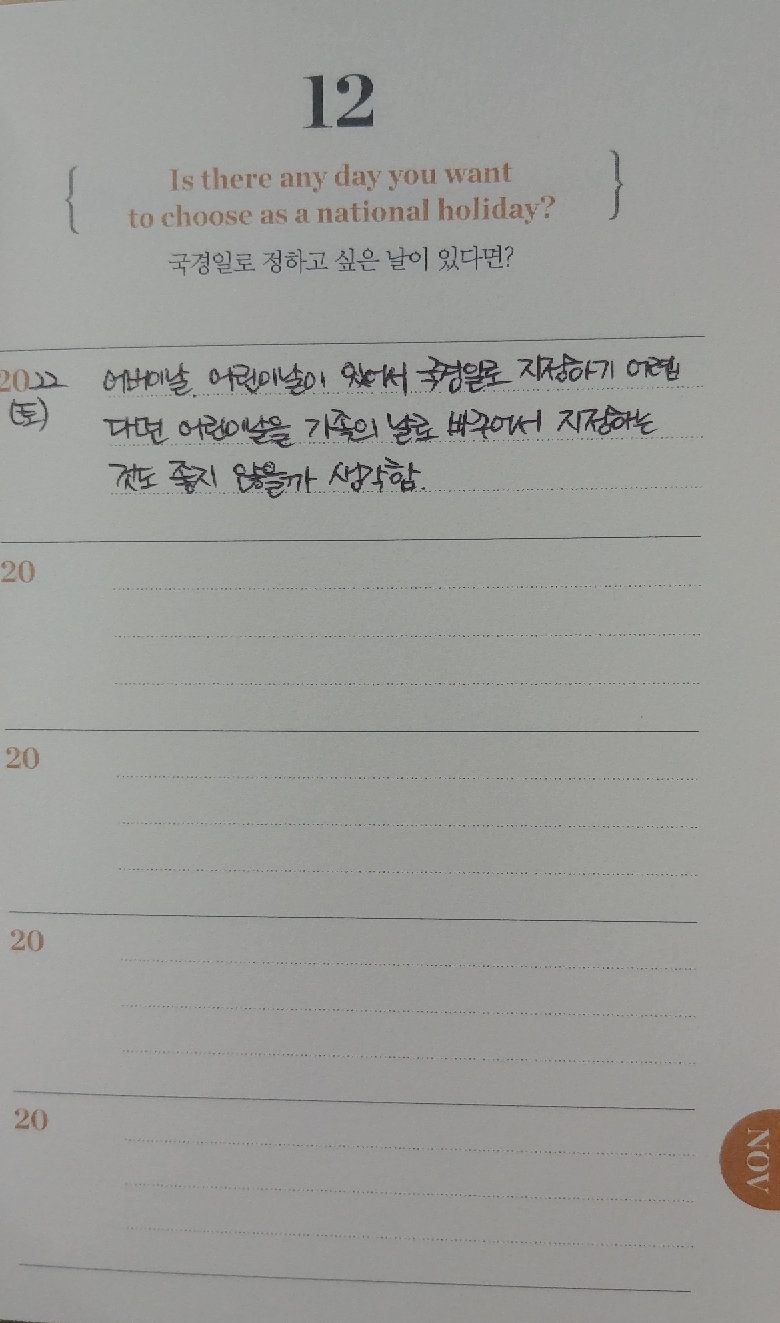 12
{ Is there any day you want }
to choose as a national holiday?
국경일로 정하고 싶은 날이 있다면?
2022 어버이날. 어린이날이 있어서 국경일로 지정하기 어렵
(토) 다면 어린이날을 가족의 날로 바꾸어서 지정하는
것도 좋지 않을까 생각함.
20
20
20
20
NOV